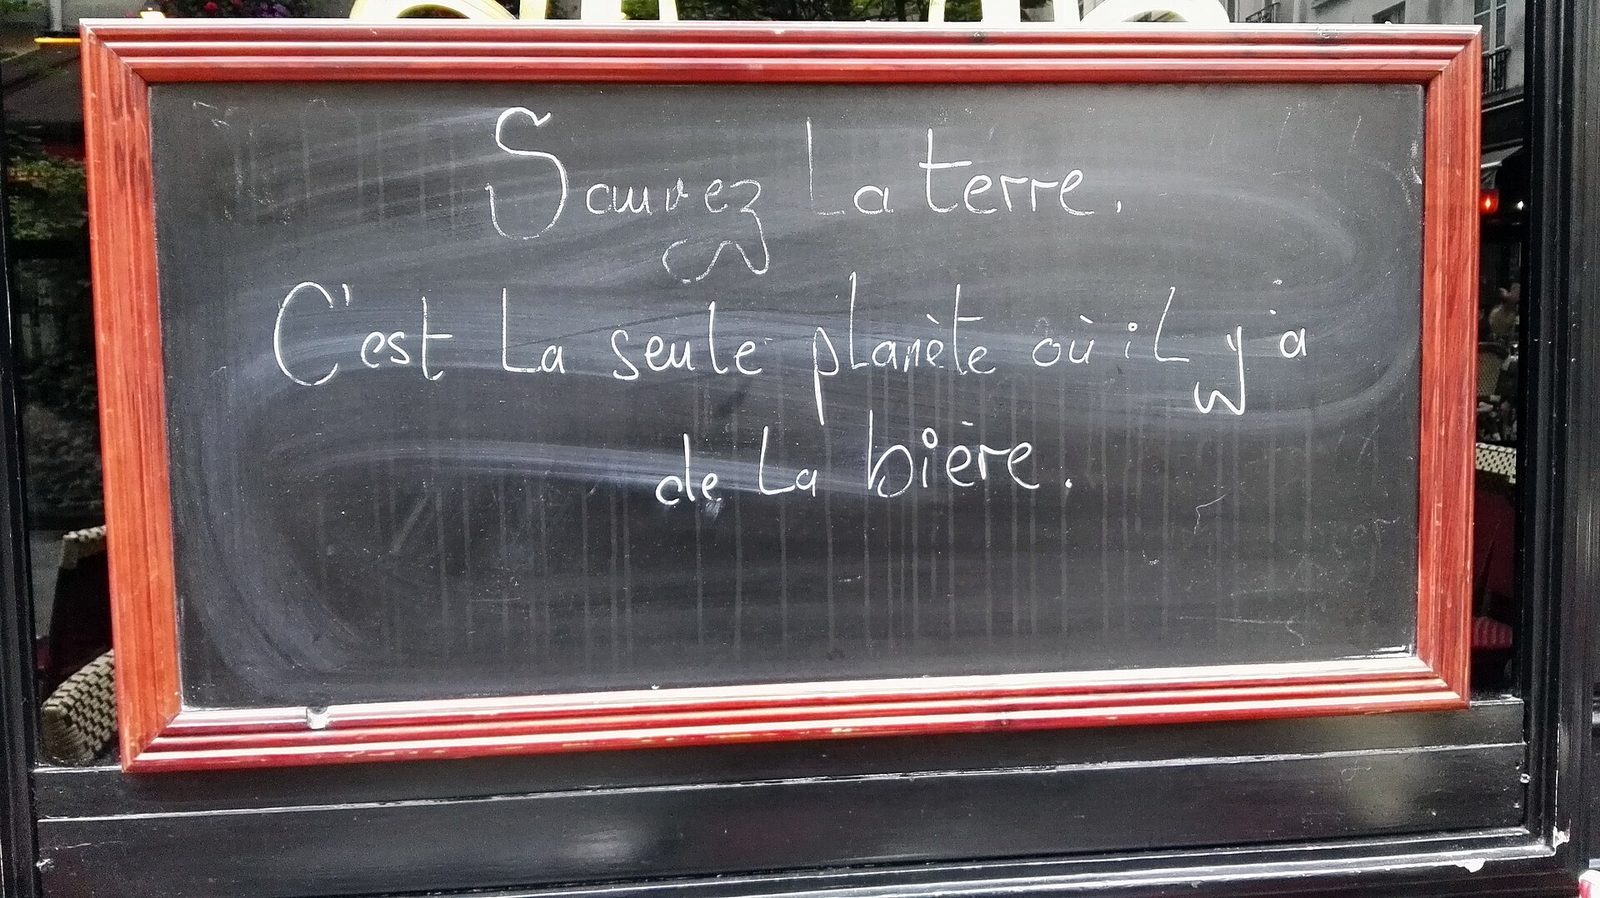 Sauvez La terre.
C'est La seule planète où il y a
de La bière.